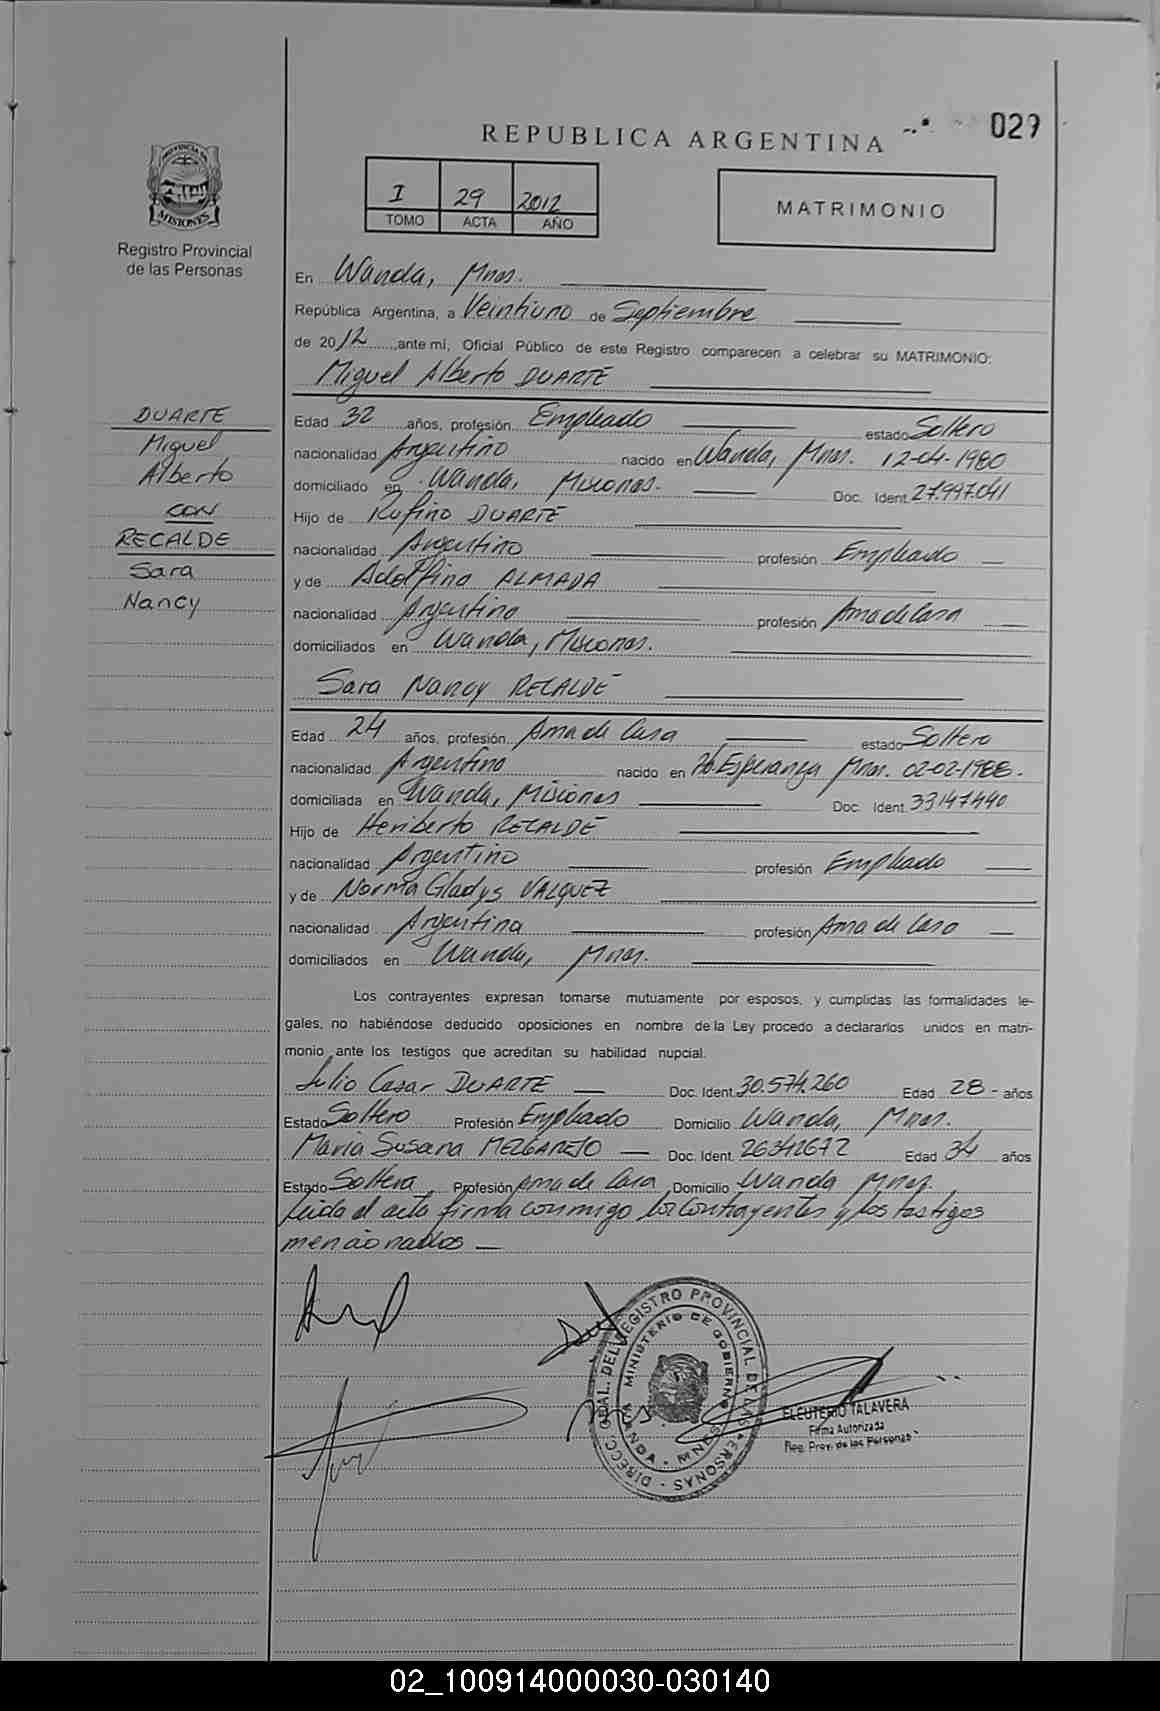 REPUBLICA ARGENTINA
029
PROVINCIA DE
MISIONES
Registro Provincial
de las Personas
I 29 2012
TOMO ACTA AÑO
MATRIMONIO
En Wanda, Mnes.
República Argentina, a Veintiuno de Septiembre
de 2012, ante mí, Oficial Público de este Registro comparecen a celebrar su MATRIMONIO:
Miguel Alberto DUARTE
DUARTE
Miguel
Alberto
CON
RECALDE
Sara
Nancy
Edad 32 años, profesión Empleado estado Soltero
nacionalidad Argentino nacido en Wanda, Mnes. 12-04-1980
domiciliado en Wanda, Misiones. Doc. Ident. 27.997.041
Hijo de Rufino DUARTE
nacionalidad Argentino profesión Empleado
y de Adolfina ALMADA
nacionalidad Argentina profesión Ama de Casa
domiciliados en Wanda, Misiones.
Sara Nancy RECALDE
Edad 24 años, profesión Ama de Casa estado Soltera
nacionalidad Argentina nacido en Pto Esperanza Mnes. 02-02-1988.
domiciliada en Wanda, Misiones Doc. Ident. 33147440
Hijo de Heriberto RECALDE
nacionalidad Argentino profesión Empleado
y de Norma Gladys VALQUEZ
nacionalidad Argentina profesión Ama de Casa
domiciliados en Wanda, Mnes.
Los contrayentes expresan tomarse mutuamente por esposos, y cumplidas las formalidades le-
gales, no habiéndose deducido oposiciones en nombre de la Ley procedo a declararlos unidos en matri-
monio ante los testigos que acreditan su habilidad nupcial.
Julio Cesar DUARTE Doc. Ident. 30.574.260 Edad 28 - años
Estado Soltero Profesión Empleado Domicilio Wanda, Mnes.
Maria Susana MELGAREJO Doc. Ident. 26342672 Edad 34 años
Estado Soltera Profesión Ama de Casa Domicilio Wanda Mnes.
Leida el acta firma conmigo los contrayentes y los testigos
mencionados
DIRECC. GRAL. DEL REGISTRO PROVINCIAL DE LAS PERSONAS
MINISTERIO DE GOBIERNO
WANDA - MNES
ELEUTERIO TALAVERA
Firma Autorizada
Reg. Prov. de las Personas
02_100914000030-030140